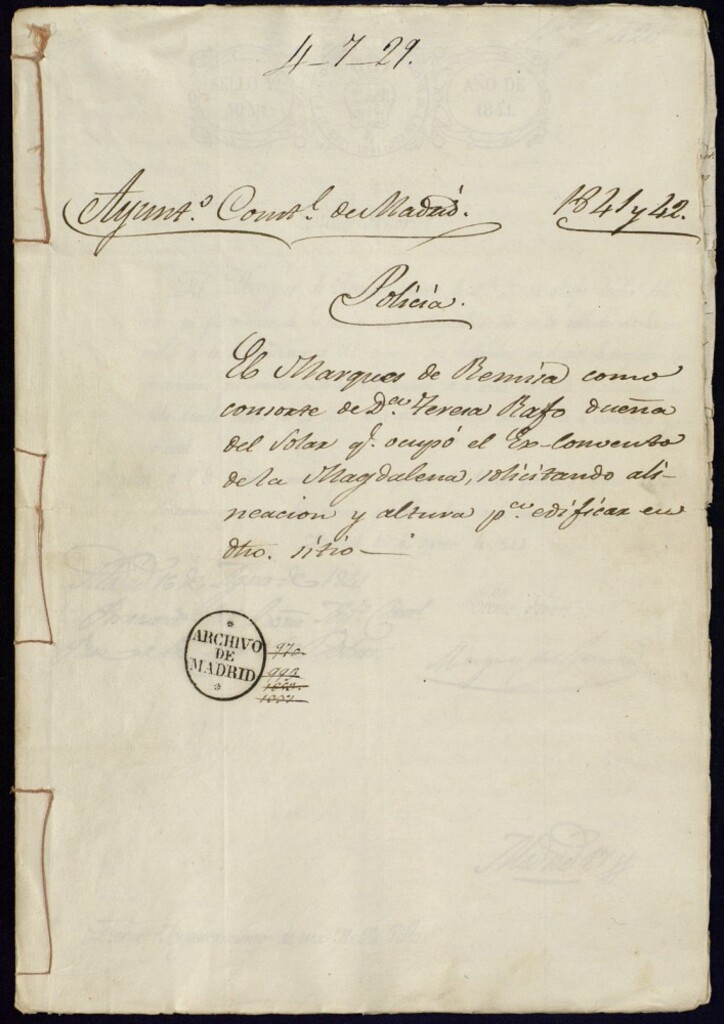 4-7-29.
Ayunt.º Const.l de Madrid. 1841 y 42.
Policia.
El Marques de Remisa como
consorte de D.ª Teresa Rafo dueña
del Solar q.e ocupó el Ex-Convento
de la Magdalena, solicitando ali-
neacion y altura p.ª edificar en
dho. sitio—
ARCHIVO
DE
MADRID
970.
999
SELLO
AÑO DE
1841.